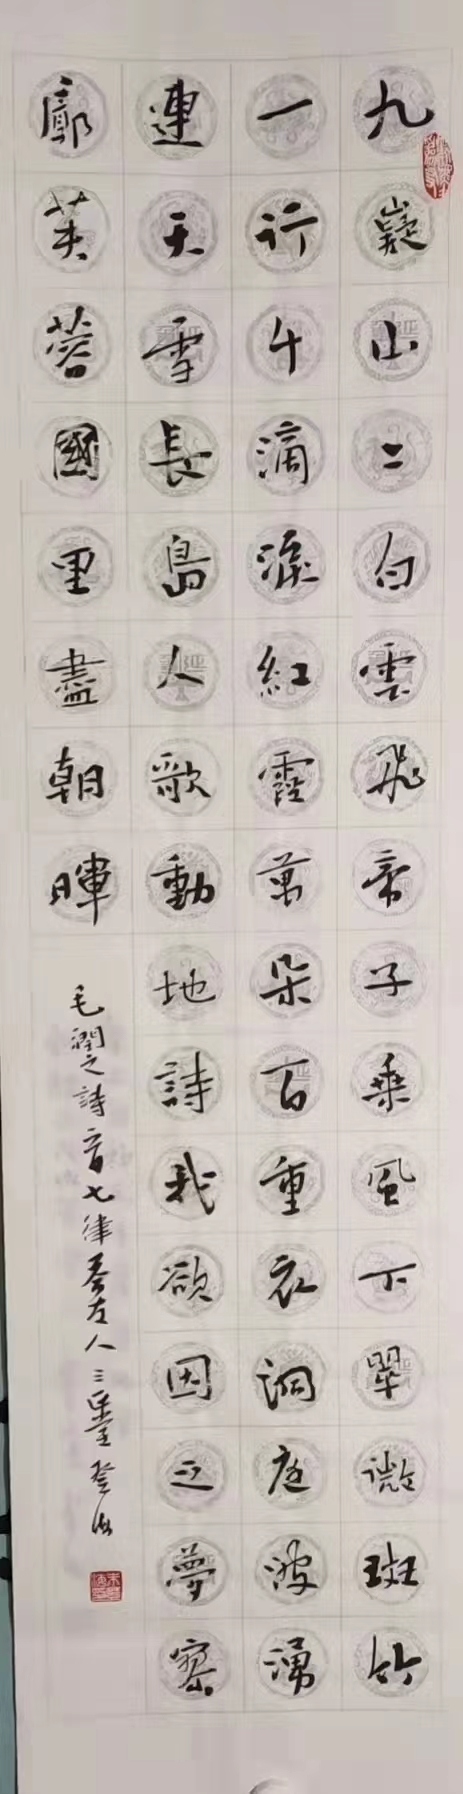 九嶷山上白雲飛帝子乘風下翠微斑竹
一行千滴淚紅霞萬朵百重衣洞庭波湧
連天雪長島人歌動地詩我欲因之夢寥
廓芙蓉國里盡朝暉
毛潤之詩一首七律答友人